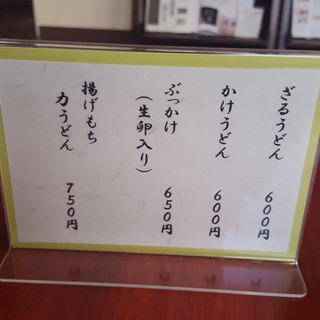 ざるうどん 600円
かけうどん 600円
ぶっかけ
(生卵入り) 650円
揚げもち
力うどん 750円